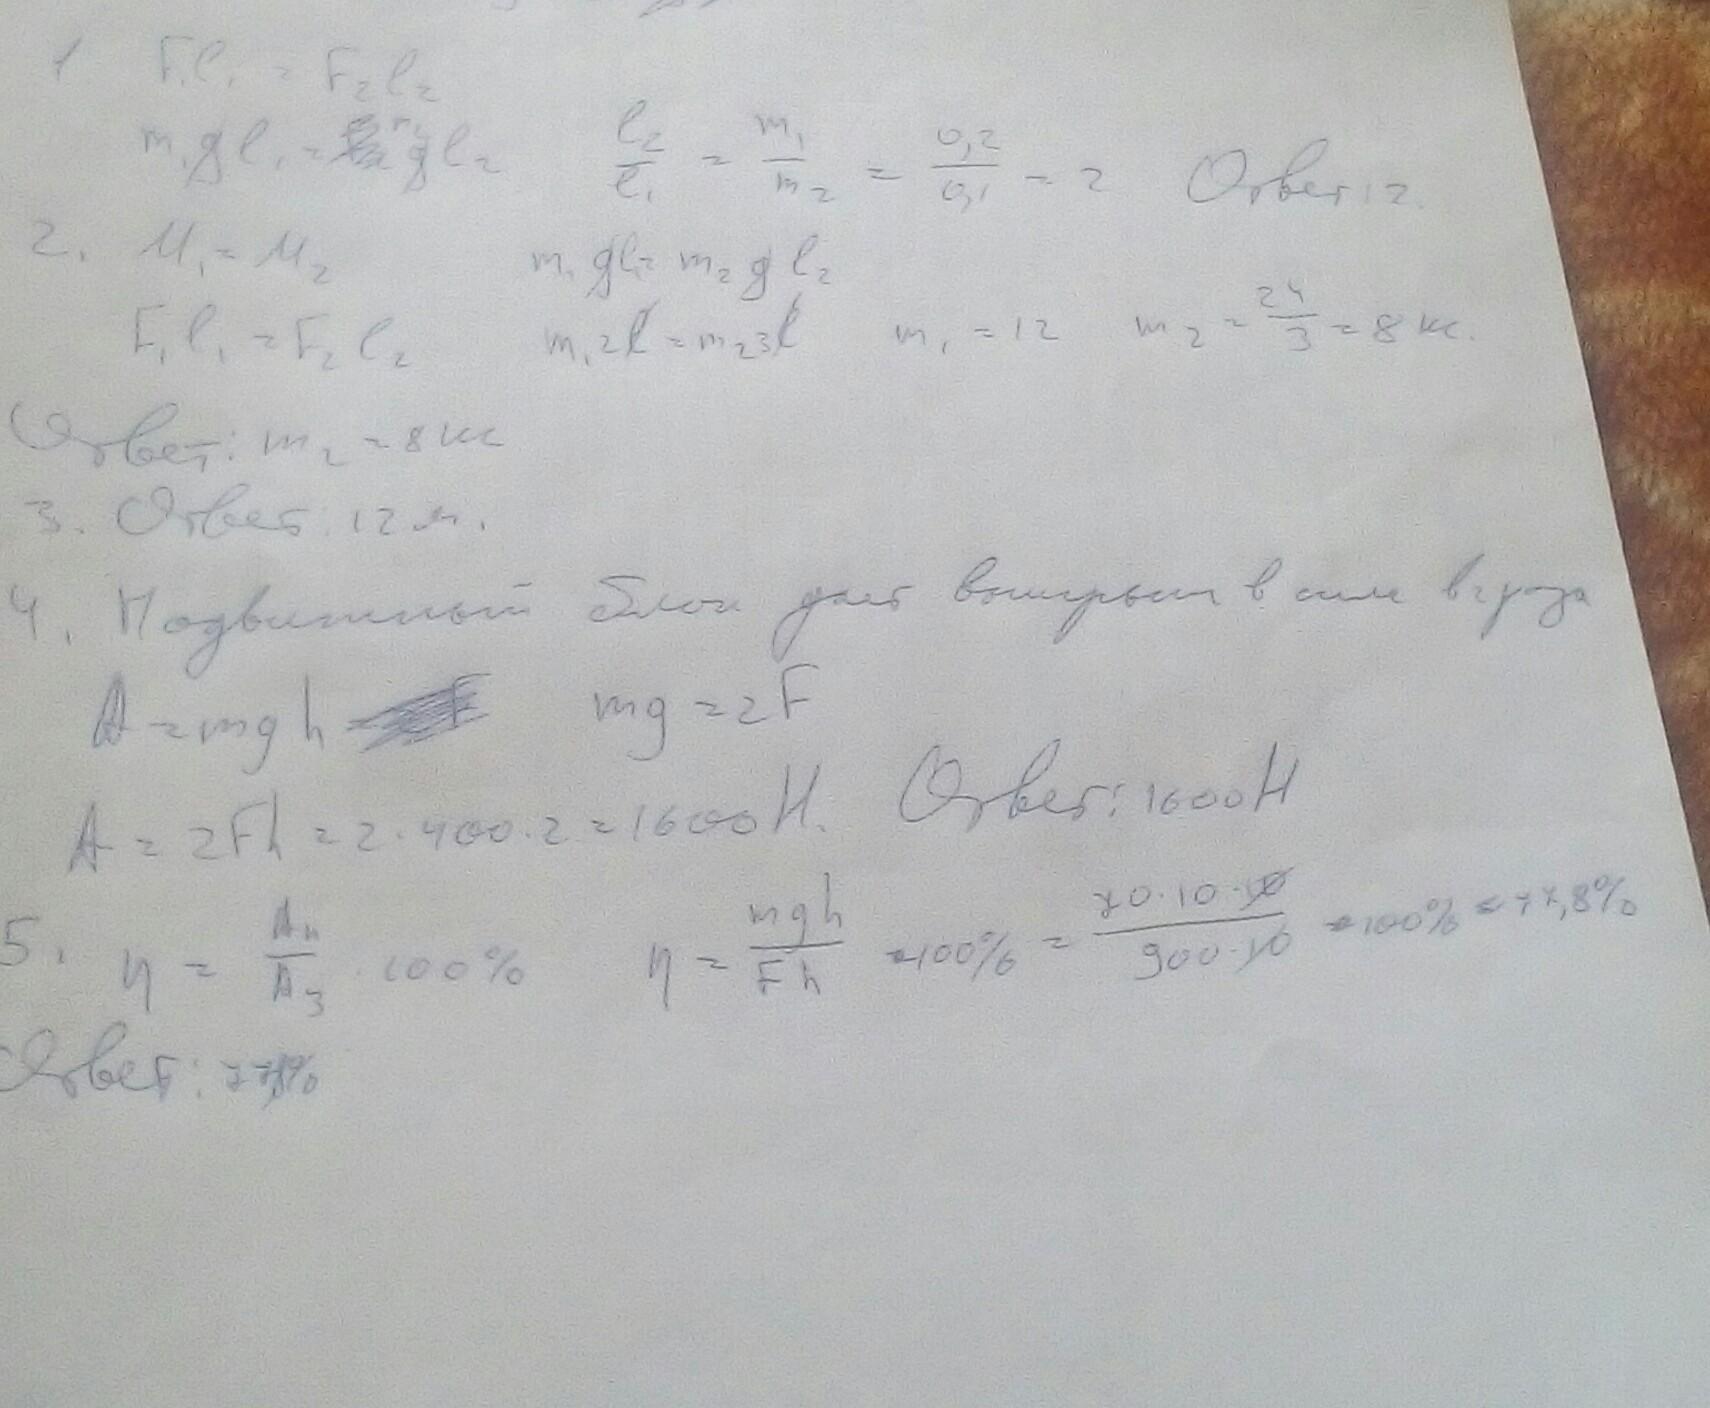 1. F₁l₁ = F₂l₂
m₁gl₁ = m₂gl₂ l₂/l₁ = m₁/m₂ = 0,2/0,1 = 2 Ответ: 2.
2. M₁ = M₂ m₁gl₁ = m₂gl₂
F₁l₁ = F₂l₂ m₁2l = m₂3l m₁ = 12 m₂ = 24/3 = 8 кг.
Ответ: m₂ = 8 кг
3. Ответ: 12 м.
4. Подвижный блок дает выигрыш в силе в 2 раза
A = mgh mg = 2F
A = 2Fh = 2·400·2 = 1600 Н. Ответ: 1600 Н
5. η = Aп/Aз · 100% η = mgh/Fh · 100% = 70·10·10/900·10 · 100% = 77,8%
Ответ: 77,8%